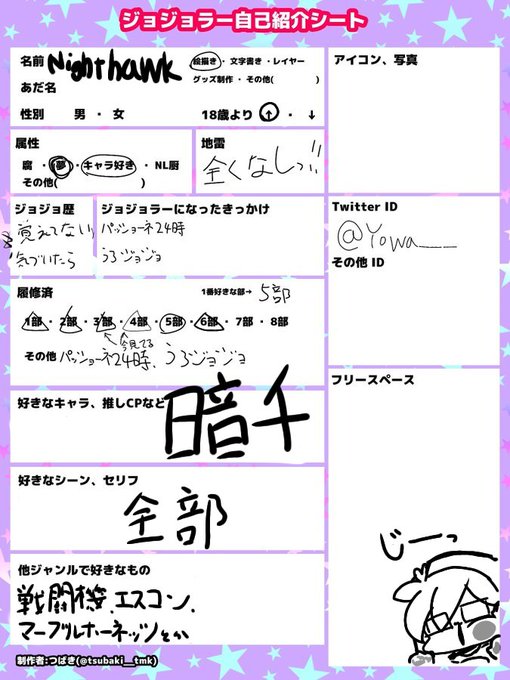 ジョジョラー自己紹介シート
名前 Nighthawk
絵描き・文字書き・レイヤー
グッズ制作・その他( )
あだ名
性別 男・女 18歳より ↑・↓
アイコン、写真
属性
腐・夢・キャラ好き・NL厨
その他( )
地雷
全くなしっ!!
ジョジョ歴
覚えてない
気づいたら
ジョジョラーになったきっかけ
パッショーネ24時
うろジョジョ
Twitter ID
@Yowa___
その他 ID
履修済 1番好きな部→ 5部
1部・2部・3部・4部・5部・6部・7部・8部
今見てる
その他 パッショーネ24時、うろジョジョ
フリースペース
好きなキャラ、推しCPなど
暗千
好きなシーン、セリフ
全部
他ジャンルで好きなもの
戦闘機、エスコン、
マーブルホーネッツとか
じーっ
制作者:つばき(@tsubaki__tmk)